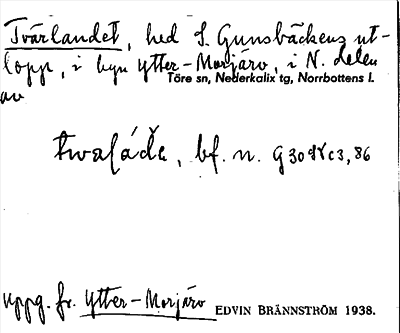 Tvärlandet, hed S. Gunsbäckens ut-
lopp, i byn Ytter-Morjärv, i N. delen
Töre sn, Nederkalix tg, Norrbottens l.
av
bf. n.
Uppg. fr. Ytter-Morjärv
EDVIN BRÄNNSTRÖM 1938.